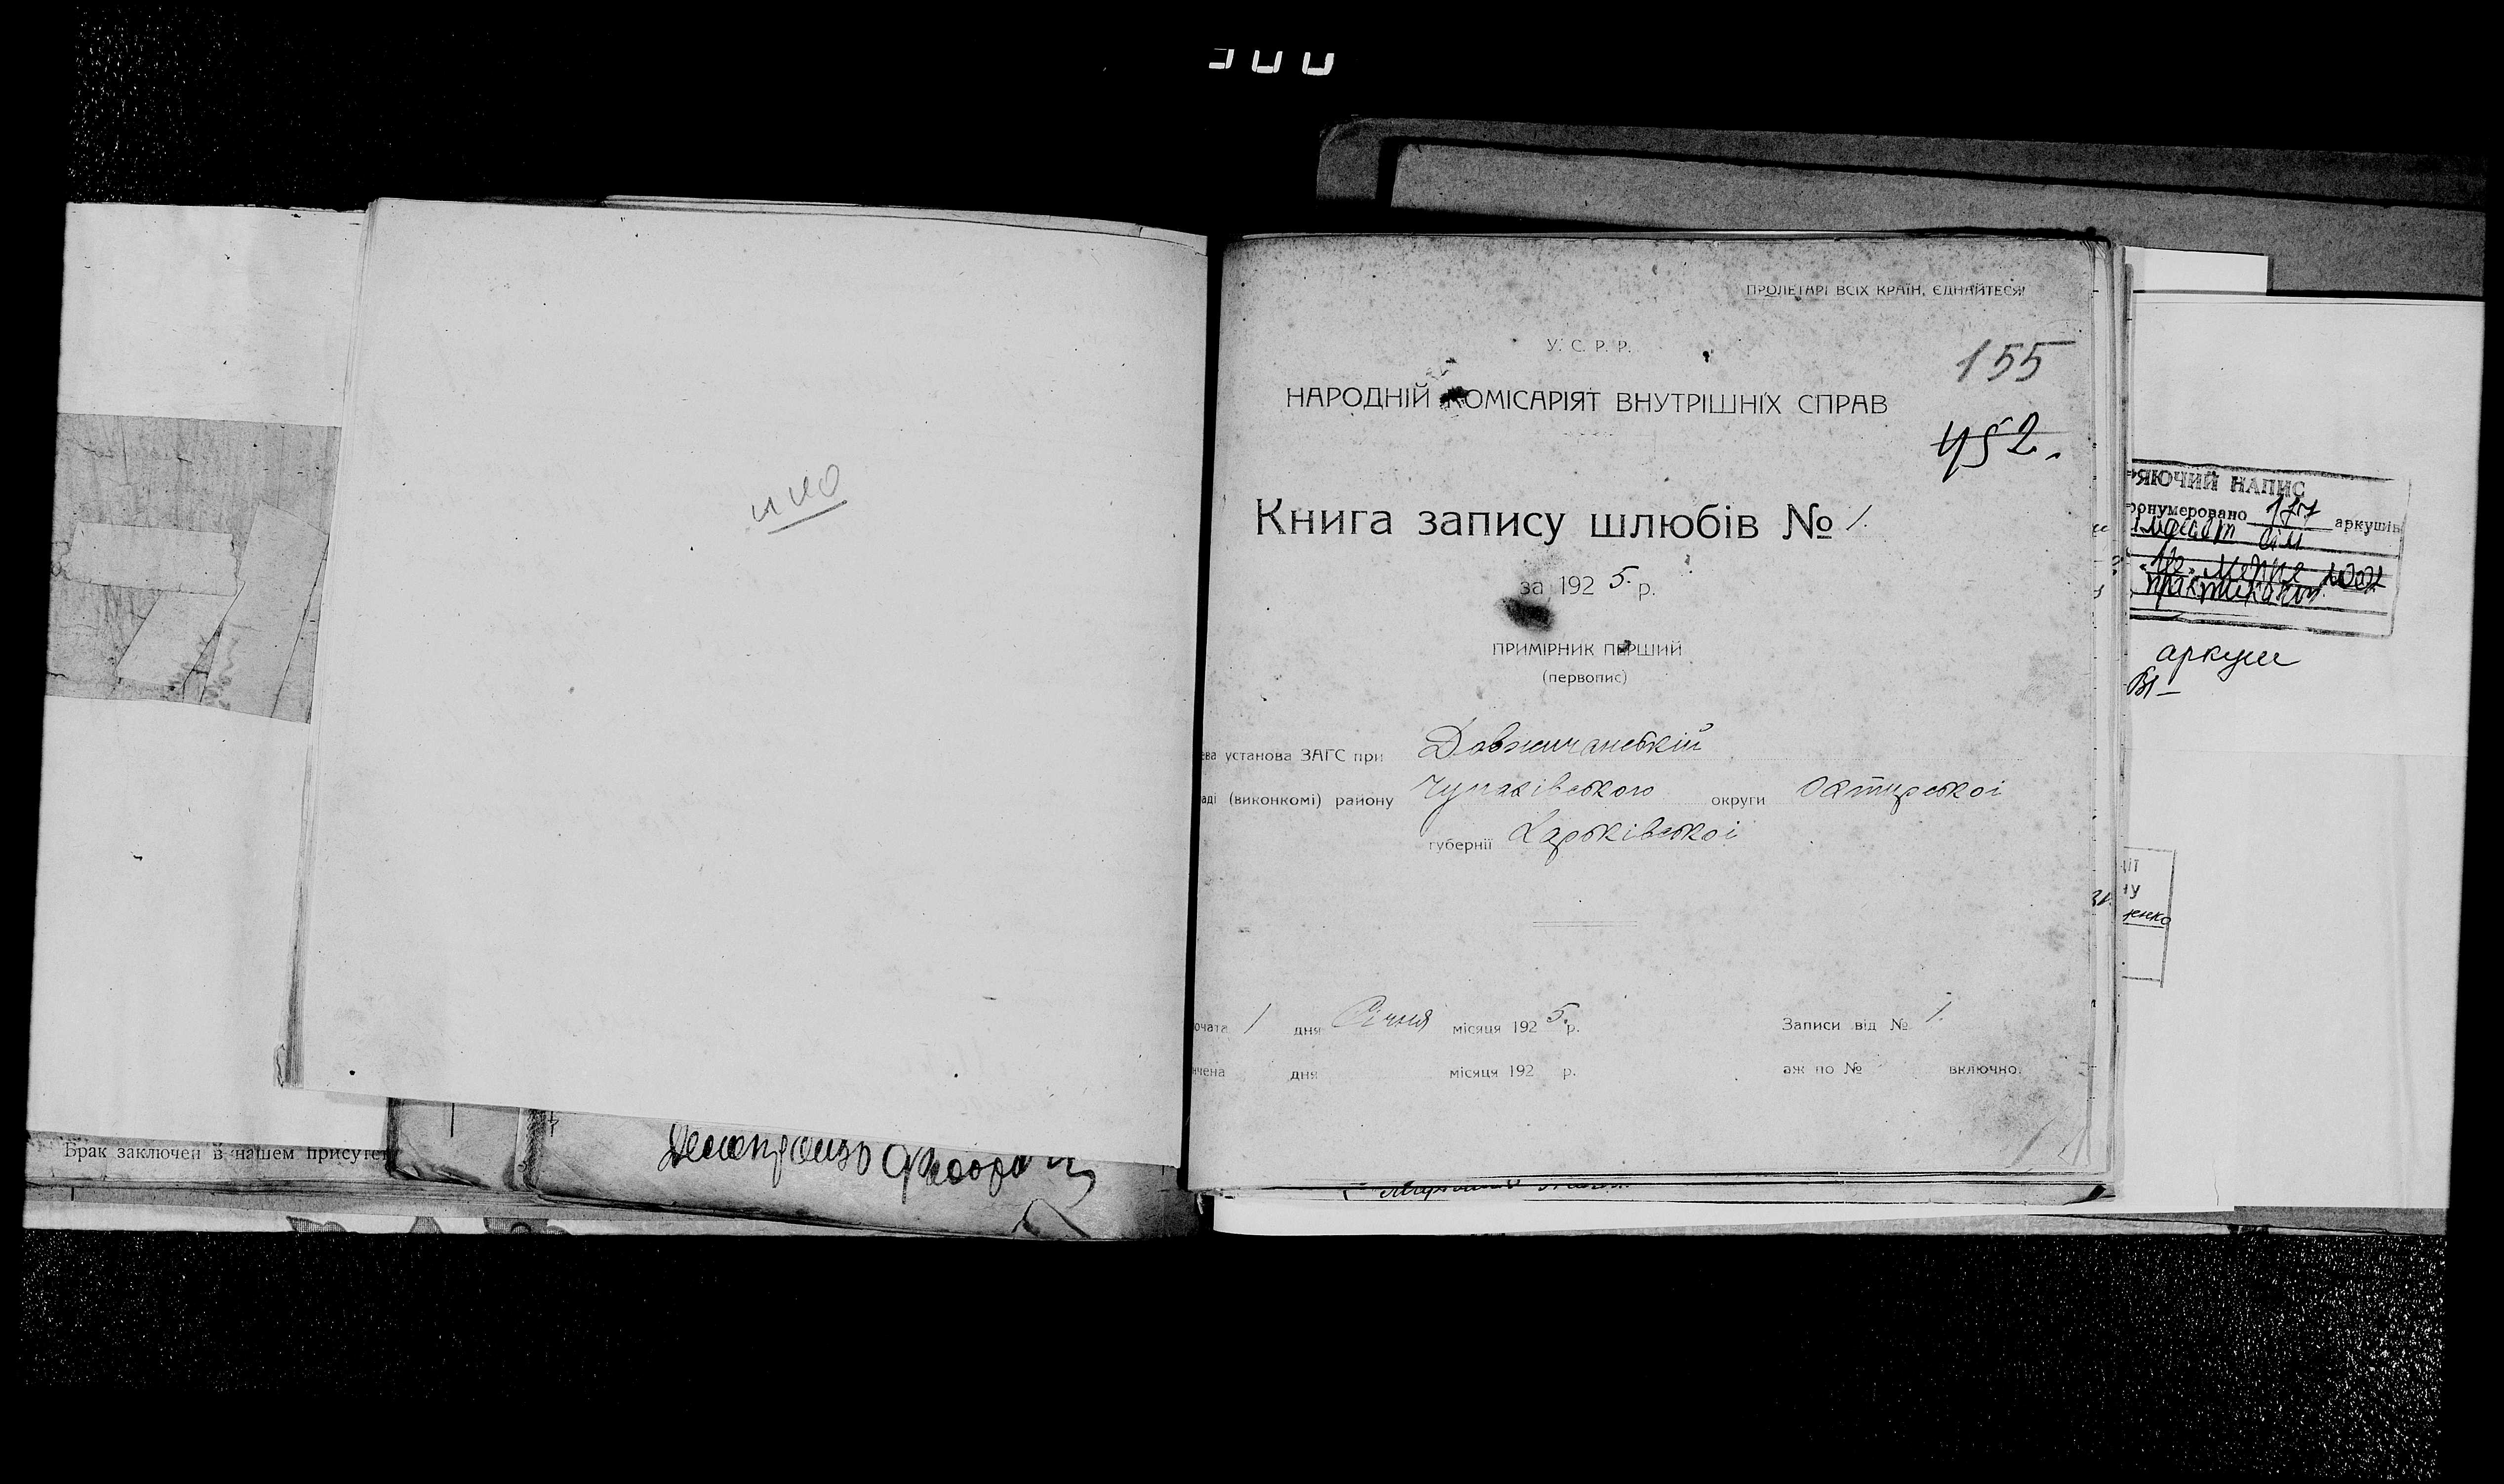 ПРОЛЕТАРІ ВСІХ КРАЇН, ЄДНАЙТЕСЯ!
У. С. Р. Р.
155
НАРОДНІЙ КОМІСАРІЯТ ВНУТРІШНІХ СПРАВ
452.
Книга запису шлюбів № 1.
за 1925 р.
ПРИМІРНИК ПЕРШИЙ
(первопис)
установа ЗАГС при Довжичанській
(виконкомі) району Чупахівського округи Охтирської
губернії Харьківської
1 дня Січня місяця 1925 р. Записи від № 1.
дня місяця 192 р. аж по № включно.
ЯЮЧИЙ НАПИС
онумеровано 177 аркушів
сім
аркуш
енко
Брак заключен в нашем присутст